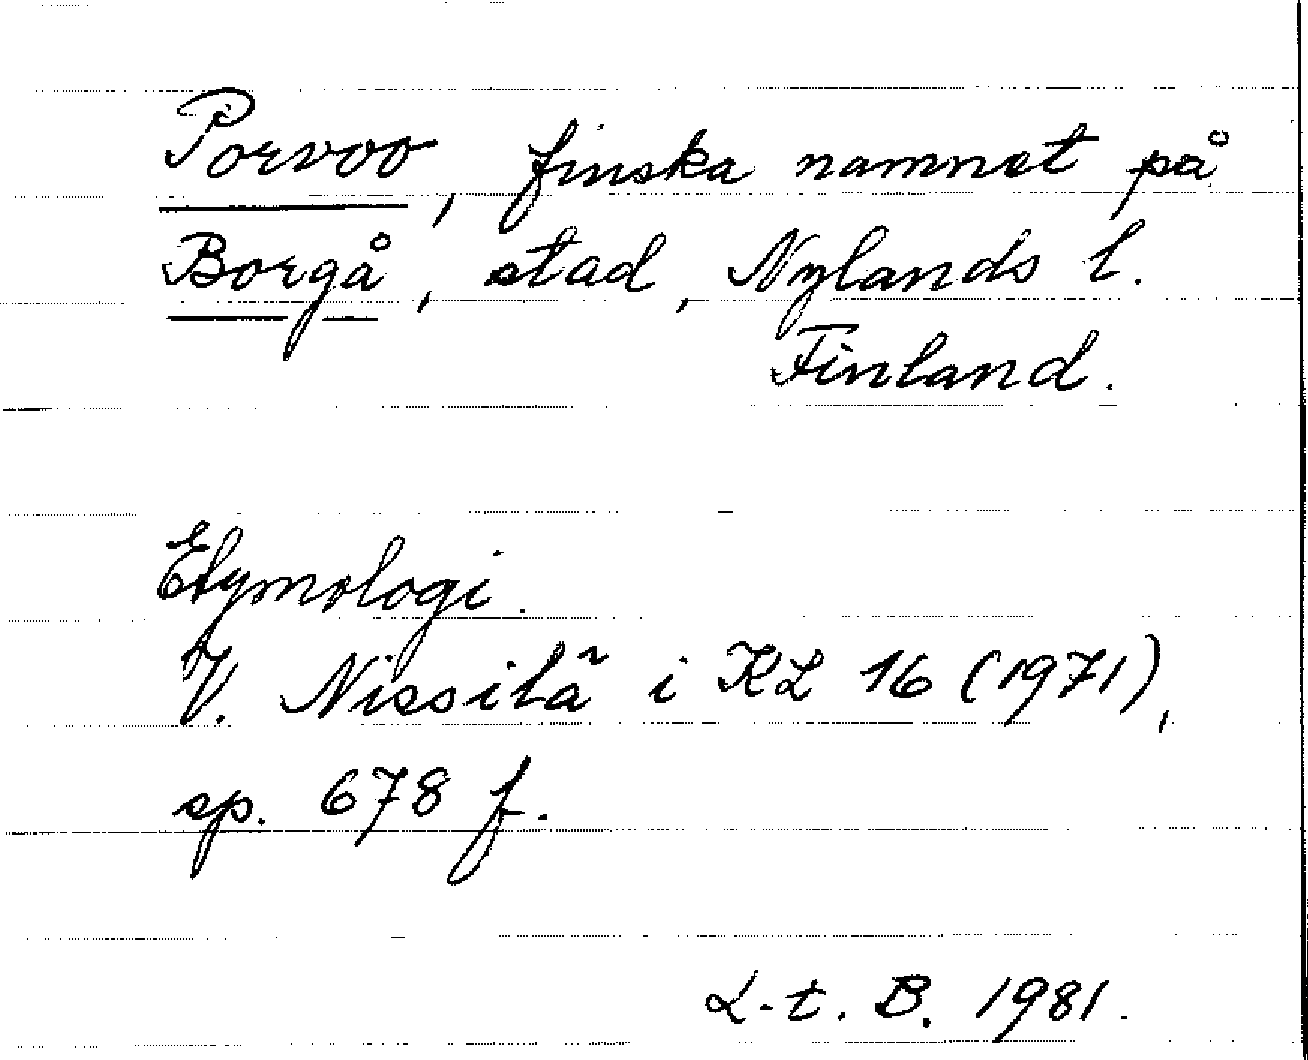 Porvoo, finska namnet på
Borgå, stad, Nylands l.
Finland.
Etymologi.
V. Nissilä i KL 16 (1971),
sp. 678 f.
L-t. B. 1981.